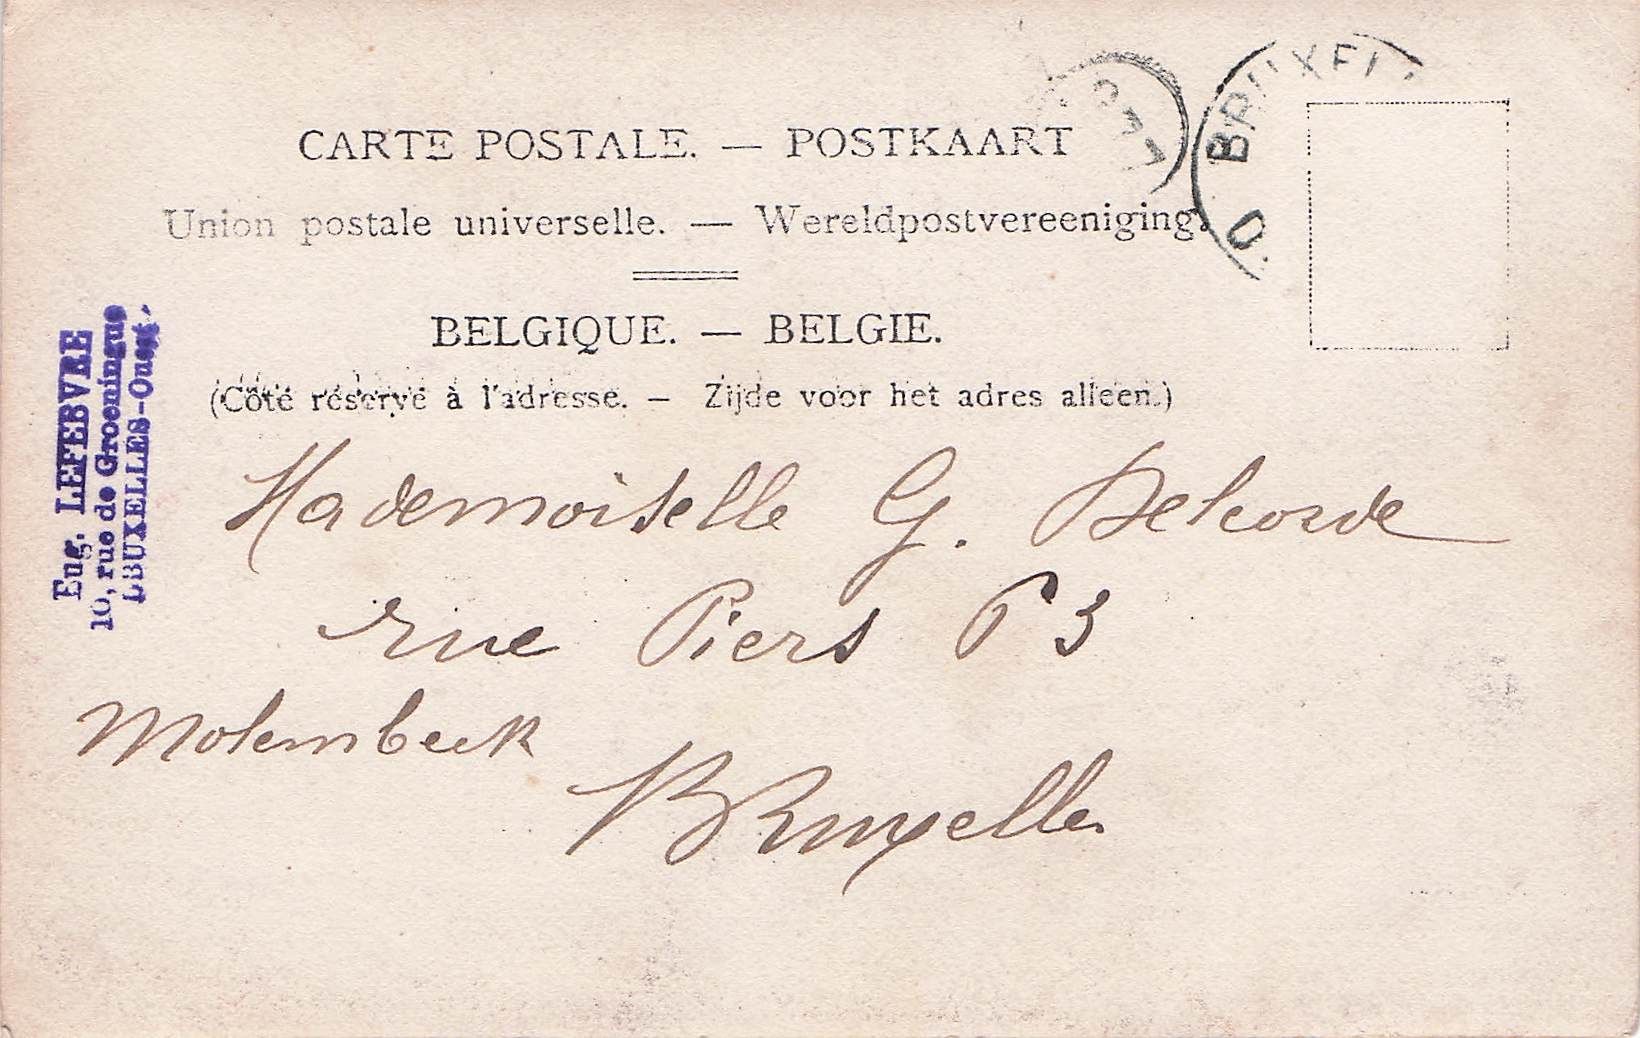 CARTE POSTALE. — POSTKAART
Union postale universelle. — Wereldpostvereeniging.
BELGIQUE. — BELGIE.
(Côté réservé à l'adresse. — Zijde voor het adres alleen.)
BRUXEL
Eug. LEFEBVRE
10, rue de Groeningue
BRUXELLES-Ouest.
Mademoiselle G. Delcorde
rue Piers 63
Molembeek
Bruxelles